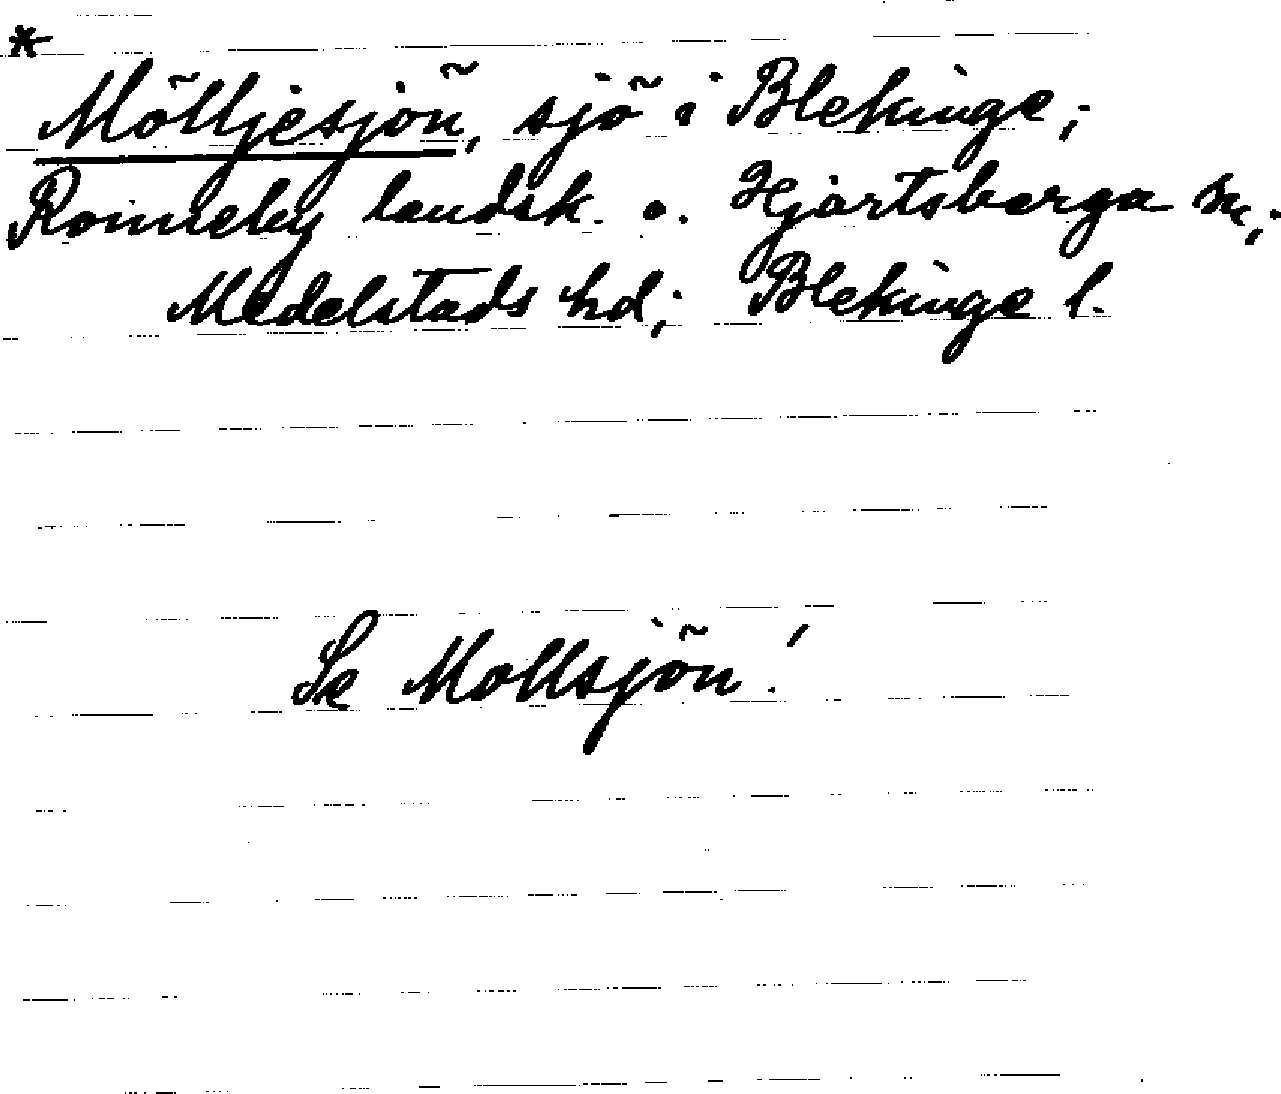 *
Mölljesjön, sjö i Blekinge;
Ronneby landsk. o. Hjortsberga sn;
Medelstads hd; Blekinge l.
Se Mollsjön!